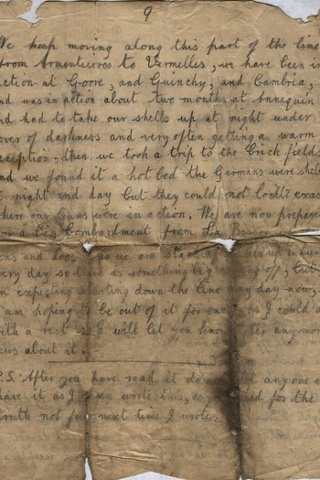 9
We keep moving along this part of the line
from Armentieres to Vermelles, we have been in
action at Gorre, and Guinchy, and Cambria,
and was in action about two months at Annequin
and had to take our shells up at night under
cover of darkness and very often getting a warm
reception; then we took a trip to the Brick fields
and we found it a hot bed the Germans were shell
night and day but they could not locate exac
where our guns were in action. We are now prepar
for a big bombardment from La Bassee
ens and Loos, as we are
every day so there is something big off, but
am expecting starting down the line any day now,
I am hoping to be out of it for as I could
with a rest, I will let you know anymore
news about it.
P.S. After you have read it do anyone
have it, as I wrote this, as for the
truth not next time I wrote.